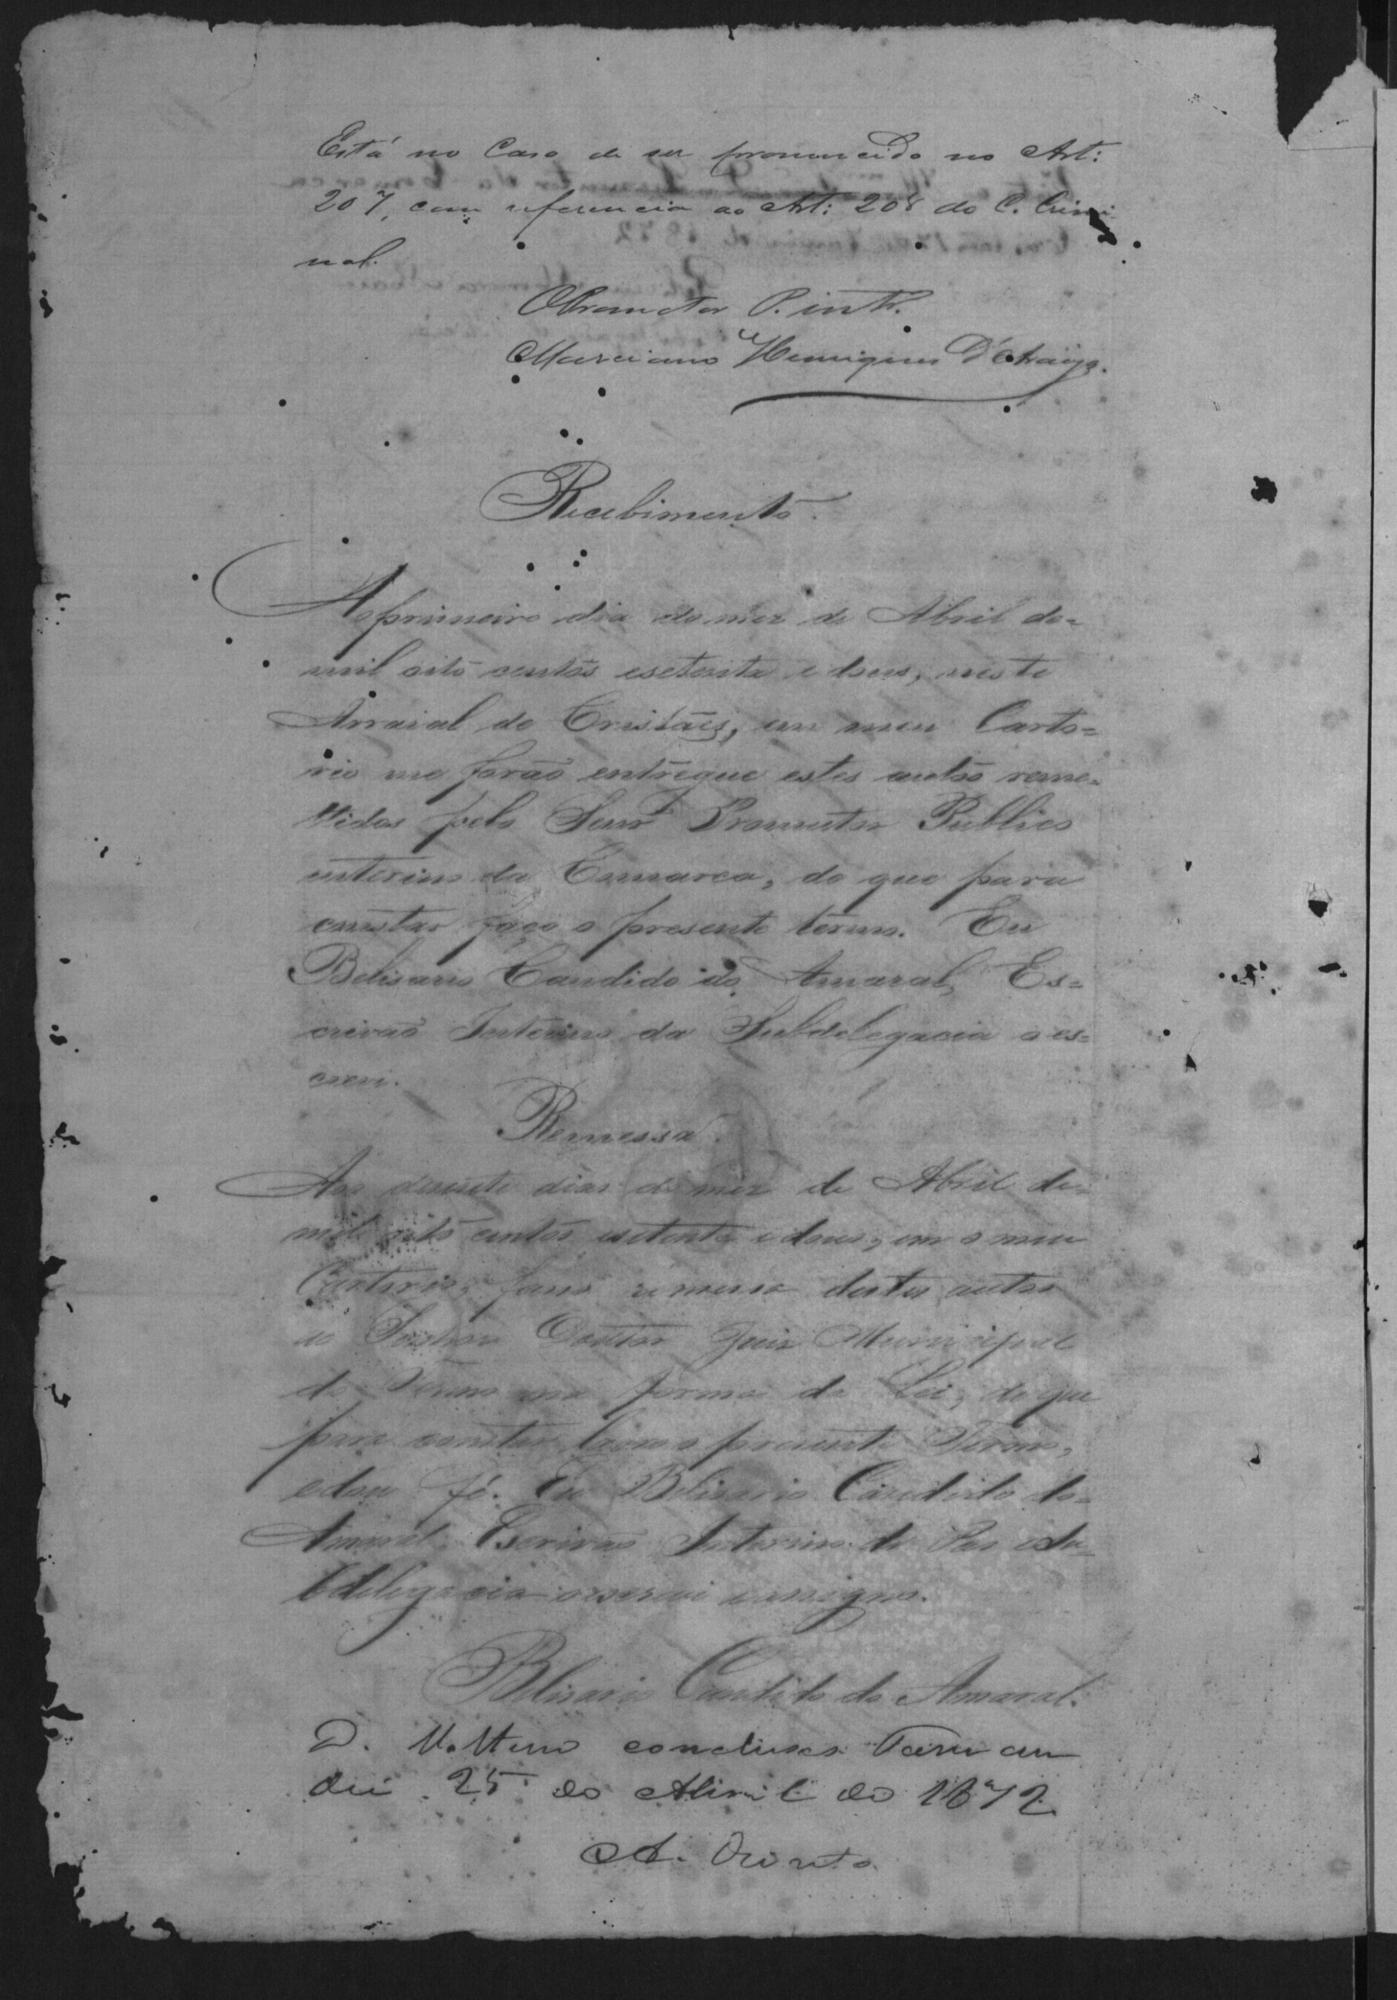 Está no caso de ser pronunciado no Art:
207, com referencia ao Art: 208 do C. Crimi
nal.
O Promotor P. intr.
Marciano Henriques D'Araujo.
Recebimento.
Ao primeiro dia do mez de Abril de=
mil oito centos esetenta e dous, neste
Arraial de Cristáes, em meu Carto=
rio me forão entregue estes autos reme=
tidos pelo Senr Promutor Publico
interino da Comarca, do que para
constar faço o presente termo. Eu
Belisario Candido do Amaral, Es=
crivão Interino da Subdelegacia o es=
crevi.
Remessa.
Aos dias do mez de Abril de=
mil oito centos setenta e dous, em o meu
Cartorio, faço remessa destes autos
ao Senhor Doutor Juiz Municipal
do Termo na forma da Lei, do que
para constar lavro o presente Termo,
edou fé. Eu Belisario Candido do=
Amaral Escrivão Interino de Paz eSu=
bdelegacia oescrevi eassigno.
Belisario Candido do Amaral.
D. Voltem conclusos Tam am
dii 25 do Abril do 1872